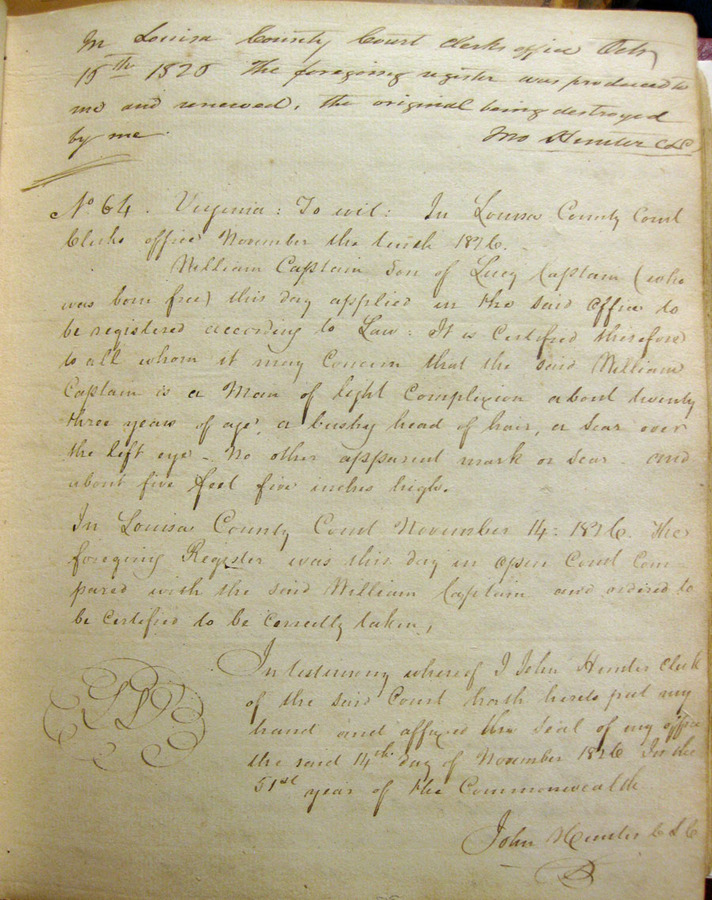 In Louisa County Court Clerks office Octr
15th 1825 The foregoing register was produced to
me and renewed, the original being destroyed
by me. Jno Hunter CLC
No 64. Virginia: To wit: In Louisa County Court
Clerks office November the tenth 1826.
William Captain Son of Lucy Captain (who
was born free) this day applied in the said office to
be registered according to Law: It is Certified therefore
to all whom it may Concern that the said William
Captain is a Man of light Complexion about twenty
three years of age, a bushy head of hair, a scar over
the left eye - No other apparent mark or scar and
about five feet five inches high.
In Louisa County Court November 14: 1826. The
foregoing Register was this day in open Court Com
pared with the said William Captain and ordered to
be Certified to be Correctly taken,
In testimony whereof I John Hunter Clerk
of the said Court hath hereto put my
hand and affixed the seal of my office
the said 14th day of November 1826 In the
51st year of the Commonwealth
John Hunter CLC